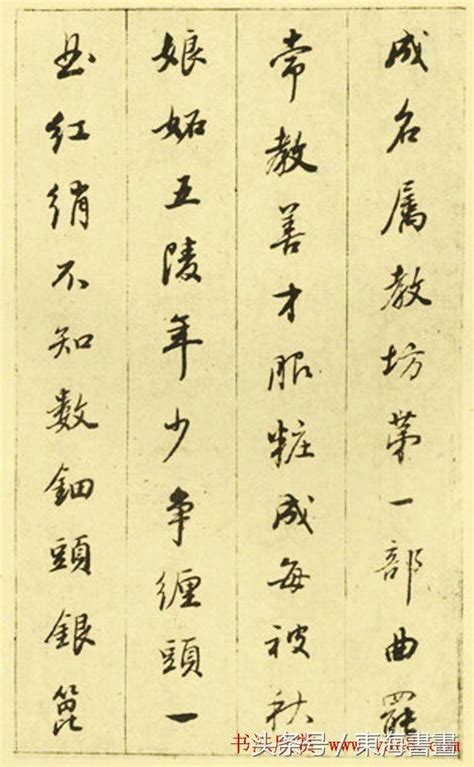 成名屬教坊第一部曲罷
常教善才服粧成每被秋
娘妬五陵年少争纏頭一
曲紅綃不知數鈿頭銀篦
头条号 / 東海書畫